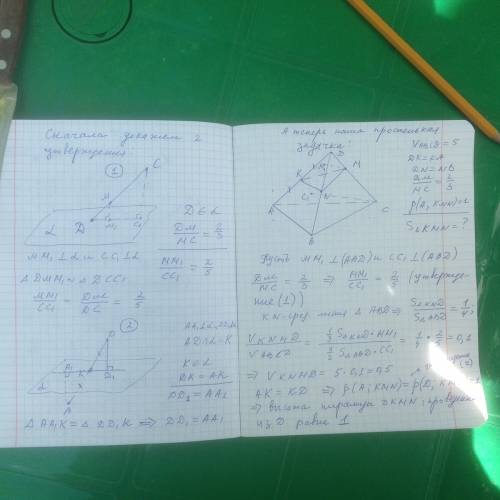 Сначала докажем 2
утверждения:
1
C
M
D
M₁
C₁
α
D ∈ α
DM/MC = 2/3
MM₁/CC₁ = 2/5
MM₁ ⊥ α и CC₁ ⊥ α
Δ DMM₁ ∼ Δ DCC₁
MM₁/CC₁ = DM/DC = 2/5
2
D
A₁
K
D₁
α
A
K ∈ α
DK = AK
DD₁ = AA₁
Δ AA₁K = Δ DD₁K ⇒ DD₁ = AA₁
А теперь наша простенькая
задачка:
D
K
M
N
A
C
B
V ABCD = 5
DK = KA
DN = NB
DM/MC = 2/3
ρ(A; KNM) = 1
S KMN = ?
Пусть MM₁ ⊥ (ABD) и CC₁ ⊥ (ABD)
DM/MC = 2/3 ⇒ MM₁/CC₁ = 2/5 (утвержде-
ние (1))
KN - сред. линия Δ ABD ⇒ S KND/S ABD = 1/4
V KNMD/V ABCD = 1/3 S KND · MM₁ / 1/3 S ABD · CC₁ = 1/4 · 2/5 = 0,1
⇒ V KNMD = 5 · 0,1 = 0,5
(2)
AK = KD ⇒ ρ(A; KNM) = ρ(D; KNM) = 1
⇒ высота пирамиды DKMN, проведен
из D равна 1